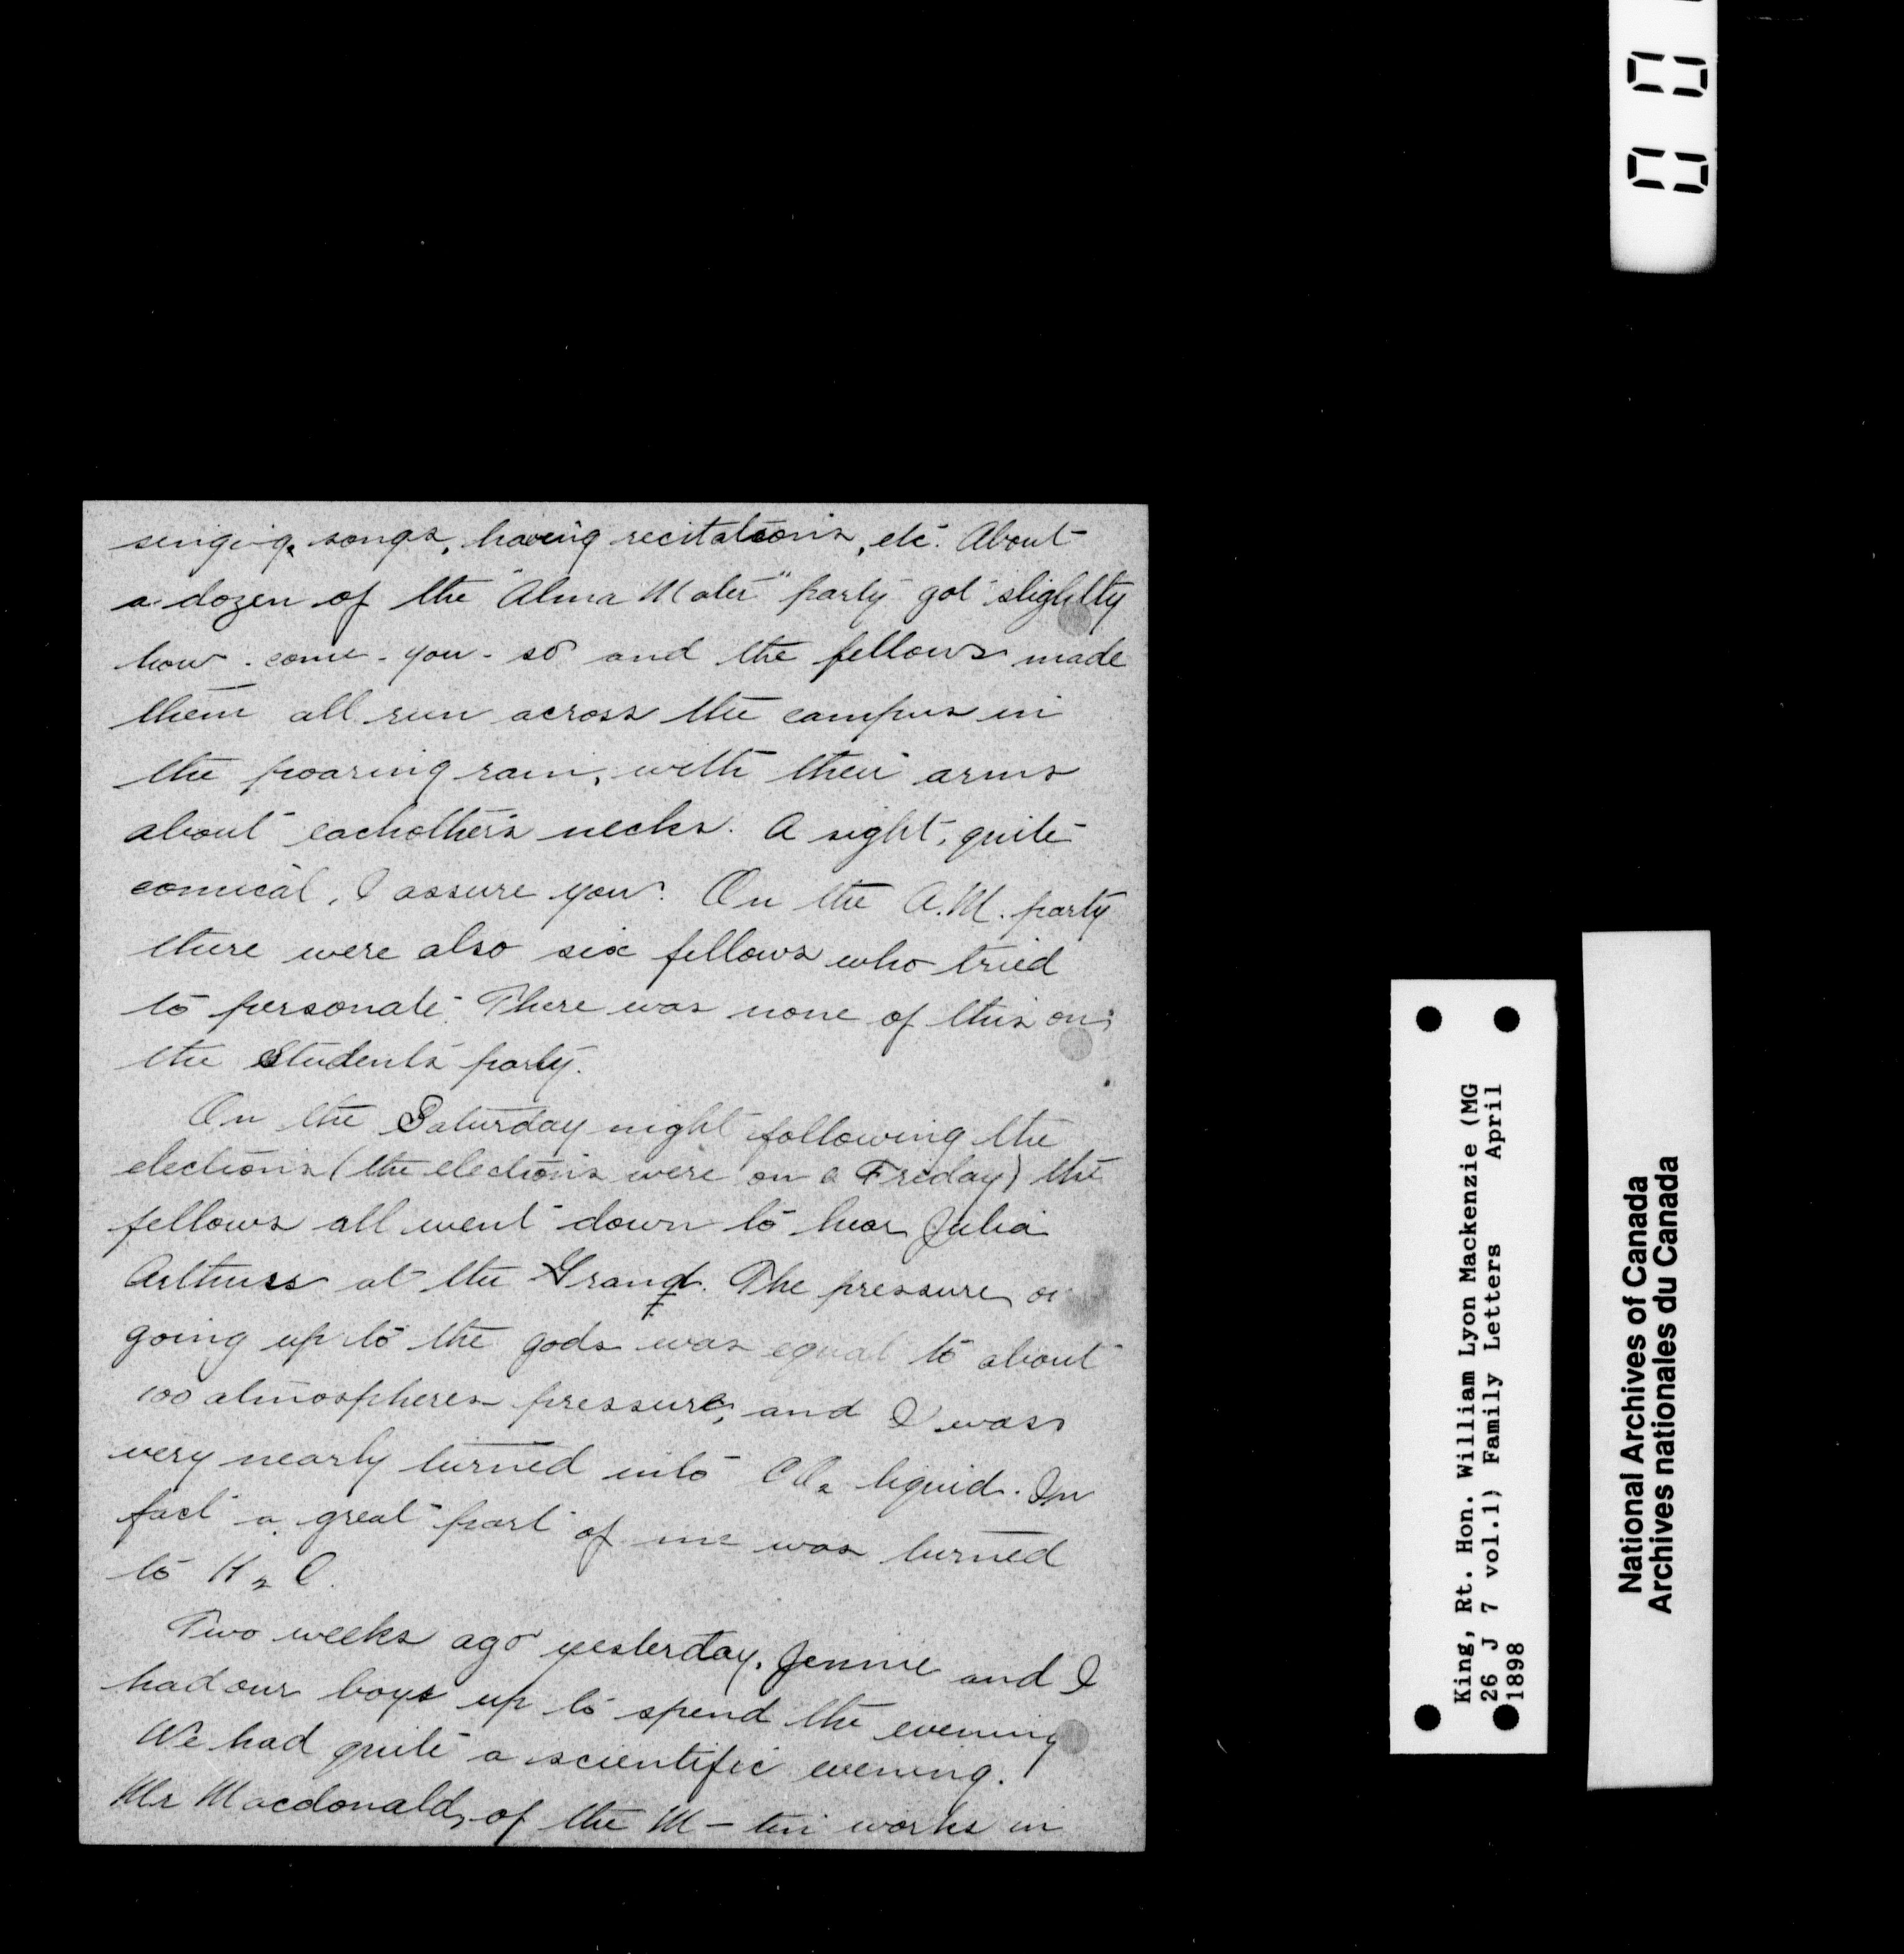 singing songs, having recitations, etc. About
a dozen of the "Alma Mater" party got slightly
how-come-you-so and the fellows made
them all run across the campus in
the poaring rain, with their arms
about eachother's necks. A sight, quite
comical, I assure you. On the A.M. party
there were also six fellows who tried
to personate. There was none of this on
the Students party.
On the Saturday night following the
elections (the elections were on a Friday) the
fellows all went down to hear Julia
Arthurs at the Grand. The pressure on
going up to the gods was equal to about
100 atmospheres pressure, and I was
very nearly turned into CO2 liquid. In
fact a great part of me was turned
to H2O.
Two weeks ago yesterday, Jennie and I
had our boys up to spend the evening
We had quite a scientific evening.
Mr Macdonald, of the M- works in
King, Rt. Hon. William Lyon Mackenzie (MG
26 J 7 vol.1) Family Letters April
1898
National Archives of Canada
Archives nationales du Canada